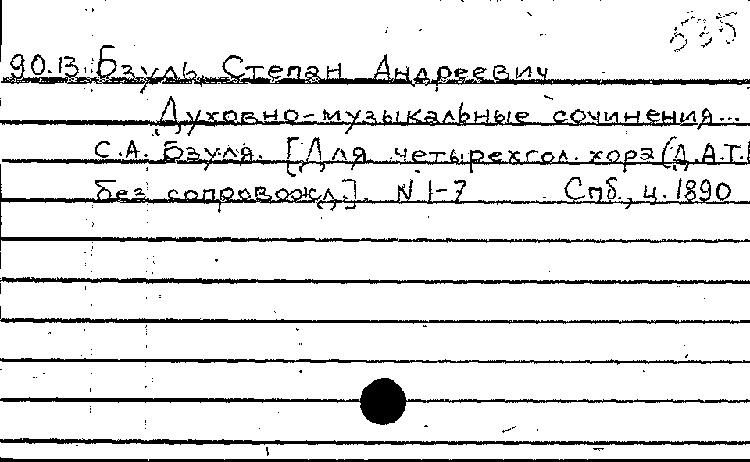 535
90.13. Бзуль Степан Андреевич
Духовно-музыкальные сочинения...
С.А. Бзуля. [Для четырехгол. хора (Д.А.Т.
без сопровожд.]. N 1-7 Спб., ц. 1890